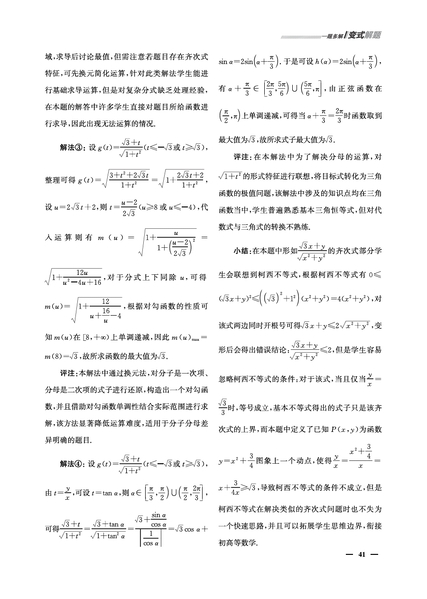 一题多解/变式解题
域,求导后讨论最值,但需注意若题目存在齐次式
特征,可先换元简化运算,针对此类解法学生能进
行基础求导运算,但是对复杂分式缺乏处理经验,
在本题的解答中许多学生直接对题目所给函数进
行求导,因此出现无法运算的情况.
解法③:设 g(t)=(√3+t)/√(1+t²)(t≤-√3或t≥√3),
整理可得 g(t)=√((3+t²+2√3t)/(1+t²))=√(1+(2√3t+2)/(1+t²)),
设 u=2√3t+2,则 t=(u-2)/(2√3)(u≥8 或 u≤-4),代
入运算则有 m(u)=√(1+u/(1+((u-2)/(2√3))²))=
√(1+12u/(u²-4u+16)),对于分式上下同除 u,可得
m(u)=√(1+12/(u+16/u-4)),根据对勾函数的性质可
知 m(u)在[8,+∞)上单调递减,因此 m(u)max=
m(8)=√3,故所求函数的最大值为√3.
评注:本解法中通过换元法,对分子是一次项、
分母是二次项的式子进行还原,构造出一个对勾函
数,并且借助对勾函数单调性结合实际范围进行求
解,该方法显著降低运算难度,适用于分子分母差
异明确的题目.
解法④:设 g(t)=(√3+t)/√(1+t²)(t≤-√3或 t≥√3),
由 t=y/x,可设 t=tan α,则 α∈[π/3,π/2)∪(π/2,2π/3],
可得(√3+t)/√(1+t²)=(√3+tan α)/√(1+tan²α)=(√3+sin α/cos α)/|1/cos α|=√3cos α+
sin α=2sin(α+π/3).于是可设 h(α)=2sin(α+π/3),
有 α+π/3∈[2π/3,5π/6)∪(5π/6,π],由正弦函数在
(π/2,π)上单调递减,可得当 α+π/3=2π/3时函数取到
最大值为√3,故所求式子最大值为√3.
评注:在本解法中为了解决分母的运算,对
√(1+t²)的形式特征进行联想,将目标式转化为三角
函数的极值问题,该解法中涉及的知识点均在三角
函数当中,学生普遍熟悉基本三角恒等式,但对代
数式与三角式的转换不熟练.
小结:在本题中形如(√3x+y)/√(x²+y²)的齐次式部分学
生会联想到柯西不等式,根据柯西不等式有 0≤
(√3x+y)²≤((√3)²+1²)(x²+y²)=4(x²+y²),对
该式两边同时开根号可得√3x+y≤2√(x²+y²),变
形后会得出错误结论:(√3x+y)/√(x²+y²)≤2,但是学生容易
忽略柯西不等式的条件:对于该式,当且仅当y/x=
√3/3时,等号成立,基本不等式得出的式子只是该齐
次式的上界,而本题中定义了已知 P(x,y)为函数
y=x²+3/4图象上一个动点,使得y/x=(x²+3/4)/x=
x+3/(4x)≥√3,导致柯西不等式的条件不成立,但是
柯西不等式在解决类似的齐次式问题时也不失为
一个快速思路,并且可以拓展学生思维边界,衔接
初高等数学.
— 41 —